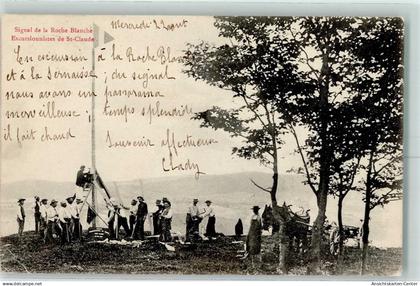 Signal de la Roche Blanche
Excursionnistes de St-Claude
Mercredi 22 août
En excursion à la Roche Blanche
et à la Bernaisse ; du signal
nous avons un panorama
merveilleux ; temps splendide
il fait chaud
Souvenir affectueux
Clady
www.ansichtskarten-center.de
Ansichtskarten-Center